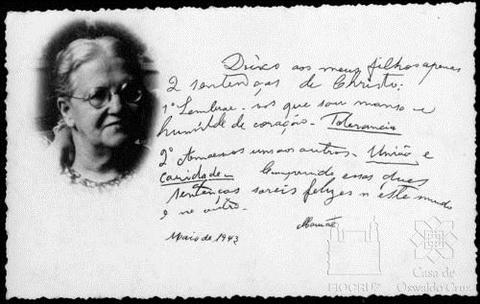 Deixo aos meus filhos apenas
2 sentenças de Christo:
1ª Lembrae-vos que sou manso e
humilde de coração. Tolerancia
2ª Amae-vos uns aos outros. União e
caridade. Cumprindo essas duas
sentenças sereis felizes n'este mundo
e no outro.
Mamãe
Maio de 1943
FIOCRUZ
Casa de
Oswaldo Cruz